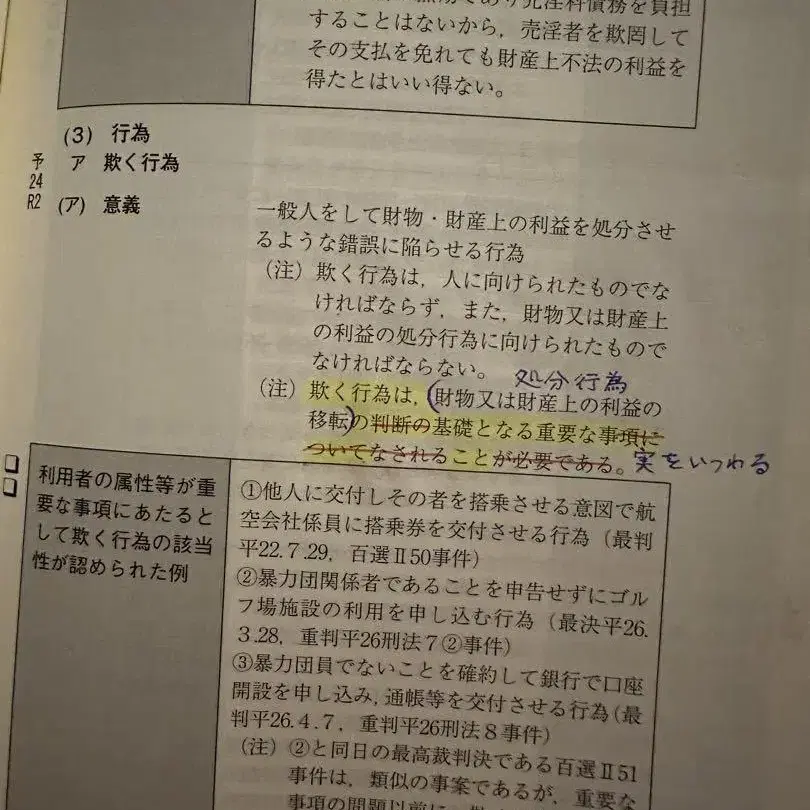 することはないから，売淫者を欺罔して
その支払を免れても財産上不法の利益を
得たとはいい得ない。
(3) 行為
予
24
R2
ア 欺く行為
(ア) 意義
一般人をして財物・財産上の利益を処分させ
るような錯誤に陥らせる行為
（注）欺く行為は，人に向けられたものでな
ければならず，また，財物又は財産上
の利益の処分行為に向けられたもので
なければならない。
処分行為
（注）欺く行為は，(財物又は財産上の利益の
移転)の判断の基礎となる重要な事項に
ついてなされることが必要である。実をいつわる
利用者の属性等が重
要な事項にあたると
して欺く行為の該当
性が認められた例
①他人に交付しその者を搭乗させる意図で航
空会社係員に搭乗券を交付させる行為（最判
平22.7.29，百選Ⅱ50事件）
②暴力団関係者であることを申告せずにゴル
フ場施設の利用を申し込む行為（最決平26.
3.28，重判平26刑法７②事件）
③暴力団員でないことを確約して銀行で口座
開設を申し込み，通帳等を交付させる行為（最
判平26.4.7，重判平26刑法８事件）
（注）②と同日の最高裁判決である百選Ⅱ51
事件は，類似の事案であるが，重要な
事項の問題以前に，